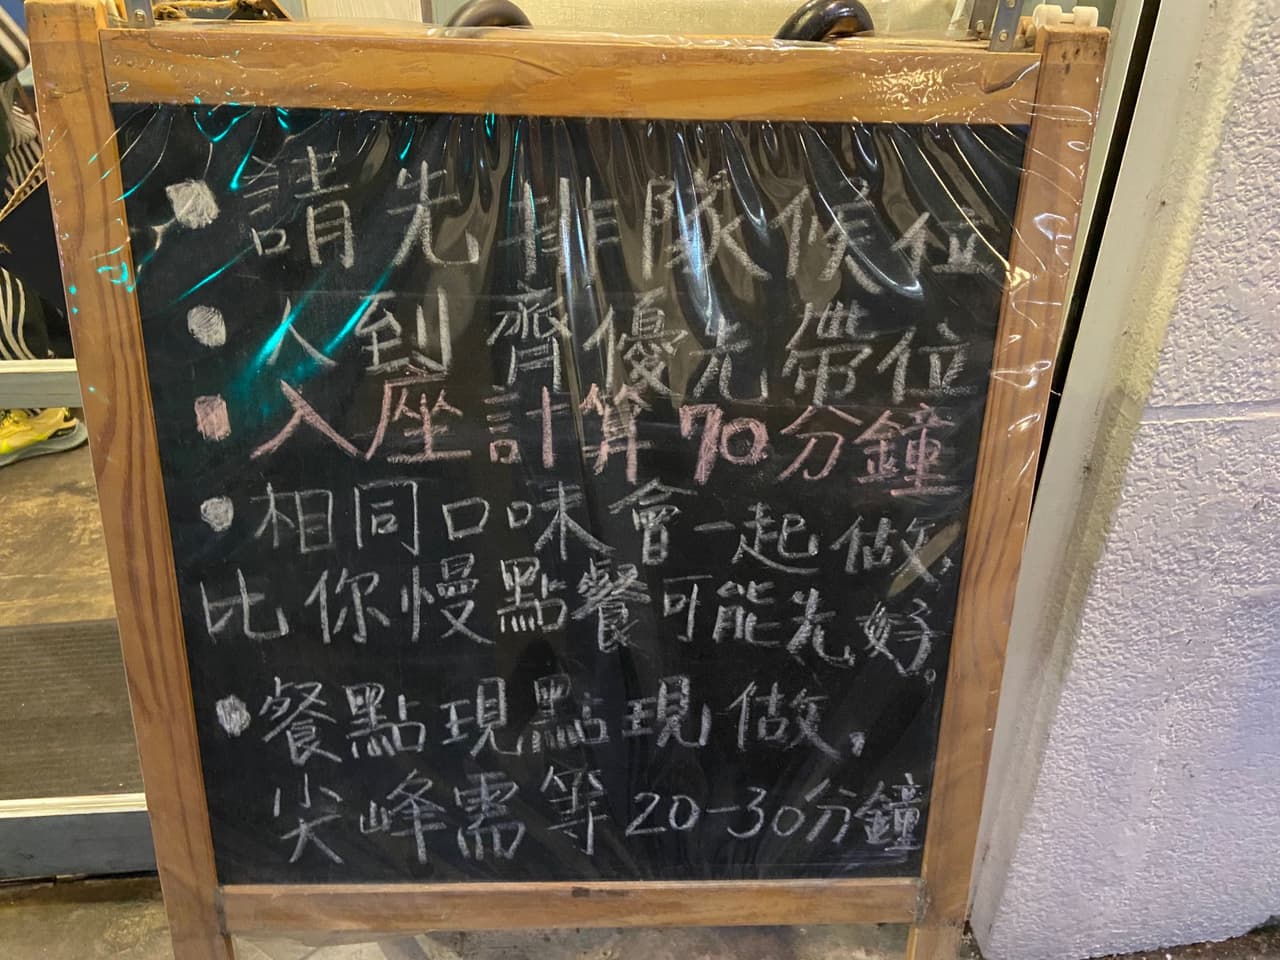 請先排隊候位
人到齊優先帶位
入座計算70分鐘
相同口味會一起做,
比你慢點餐可能先好。
餐點現點現做,
尖峰需等20-30分鐘